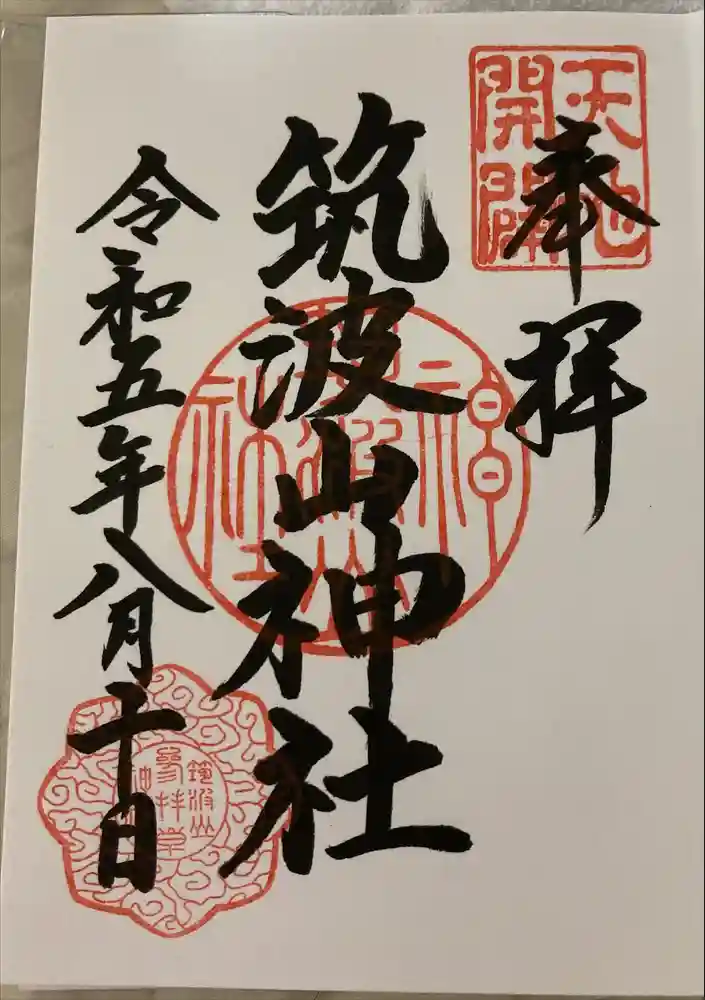 奉拝
天地
開闢
筑波山神社
筑波山
神社
令和五年八月十日
筑波山
参拝堂